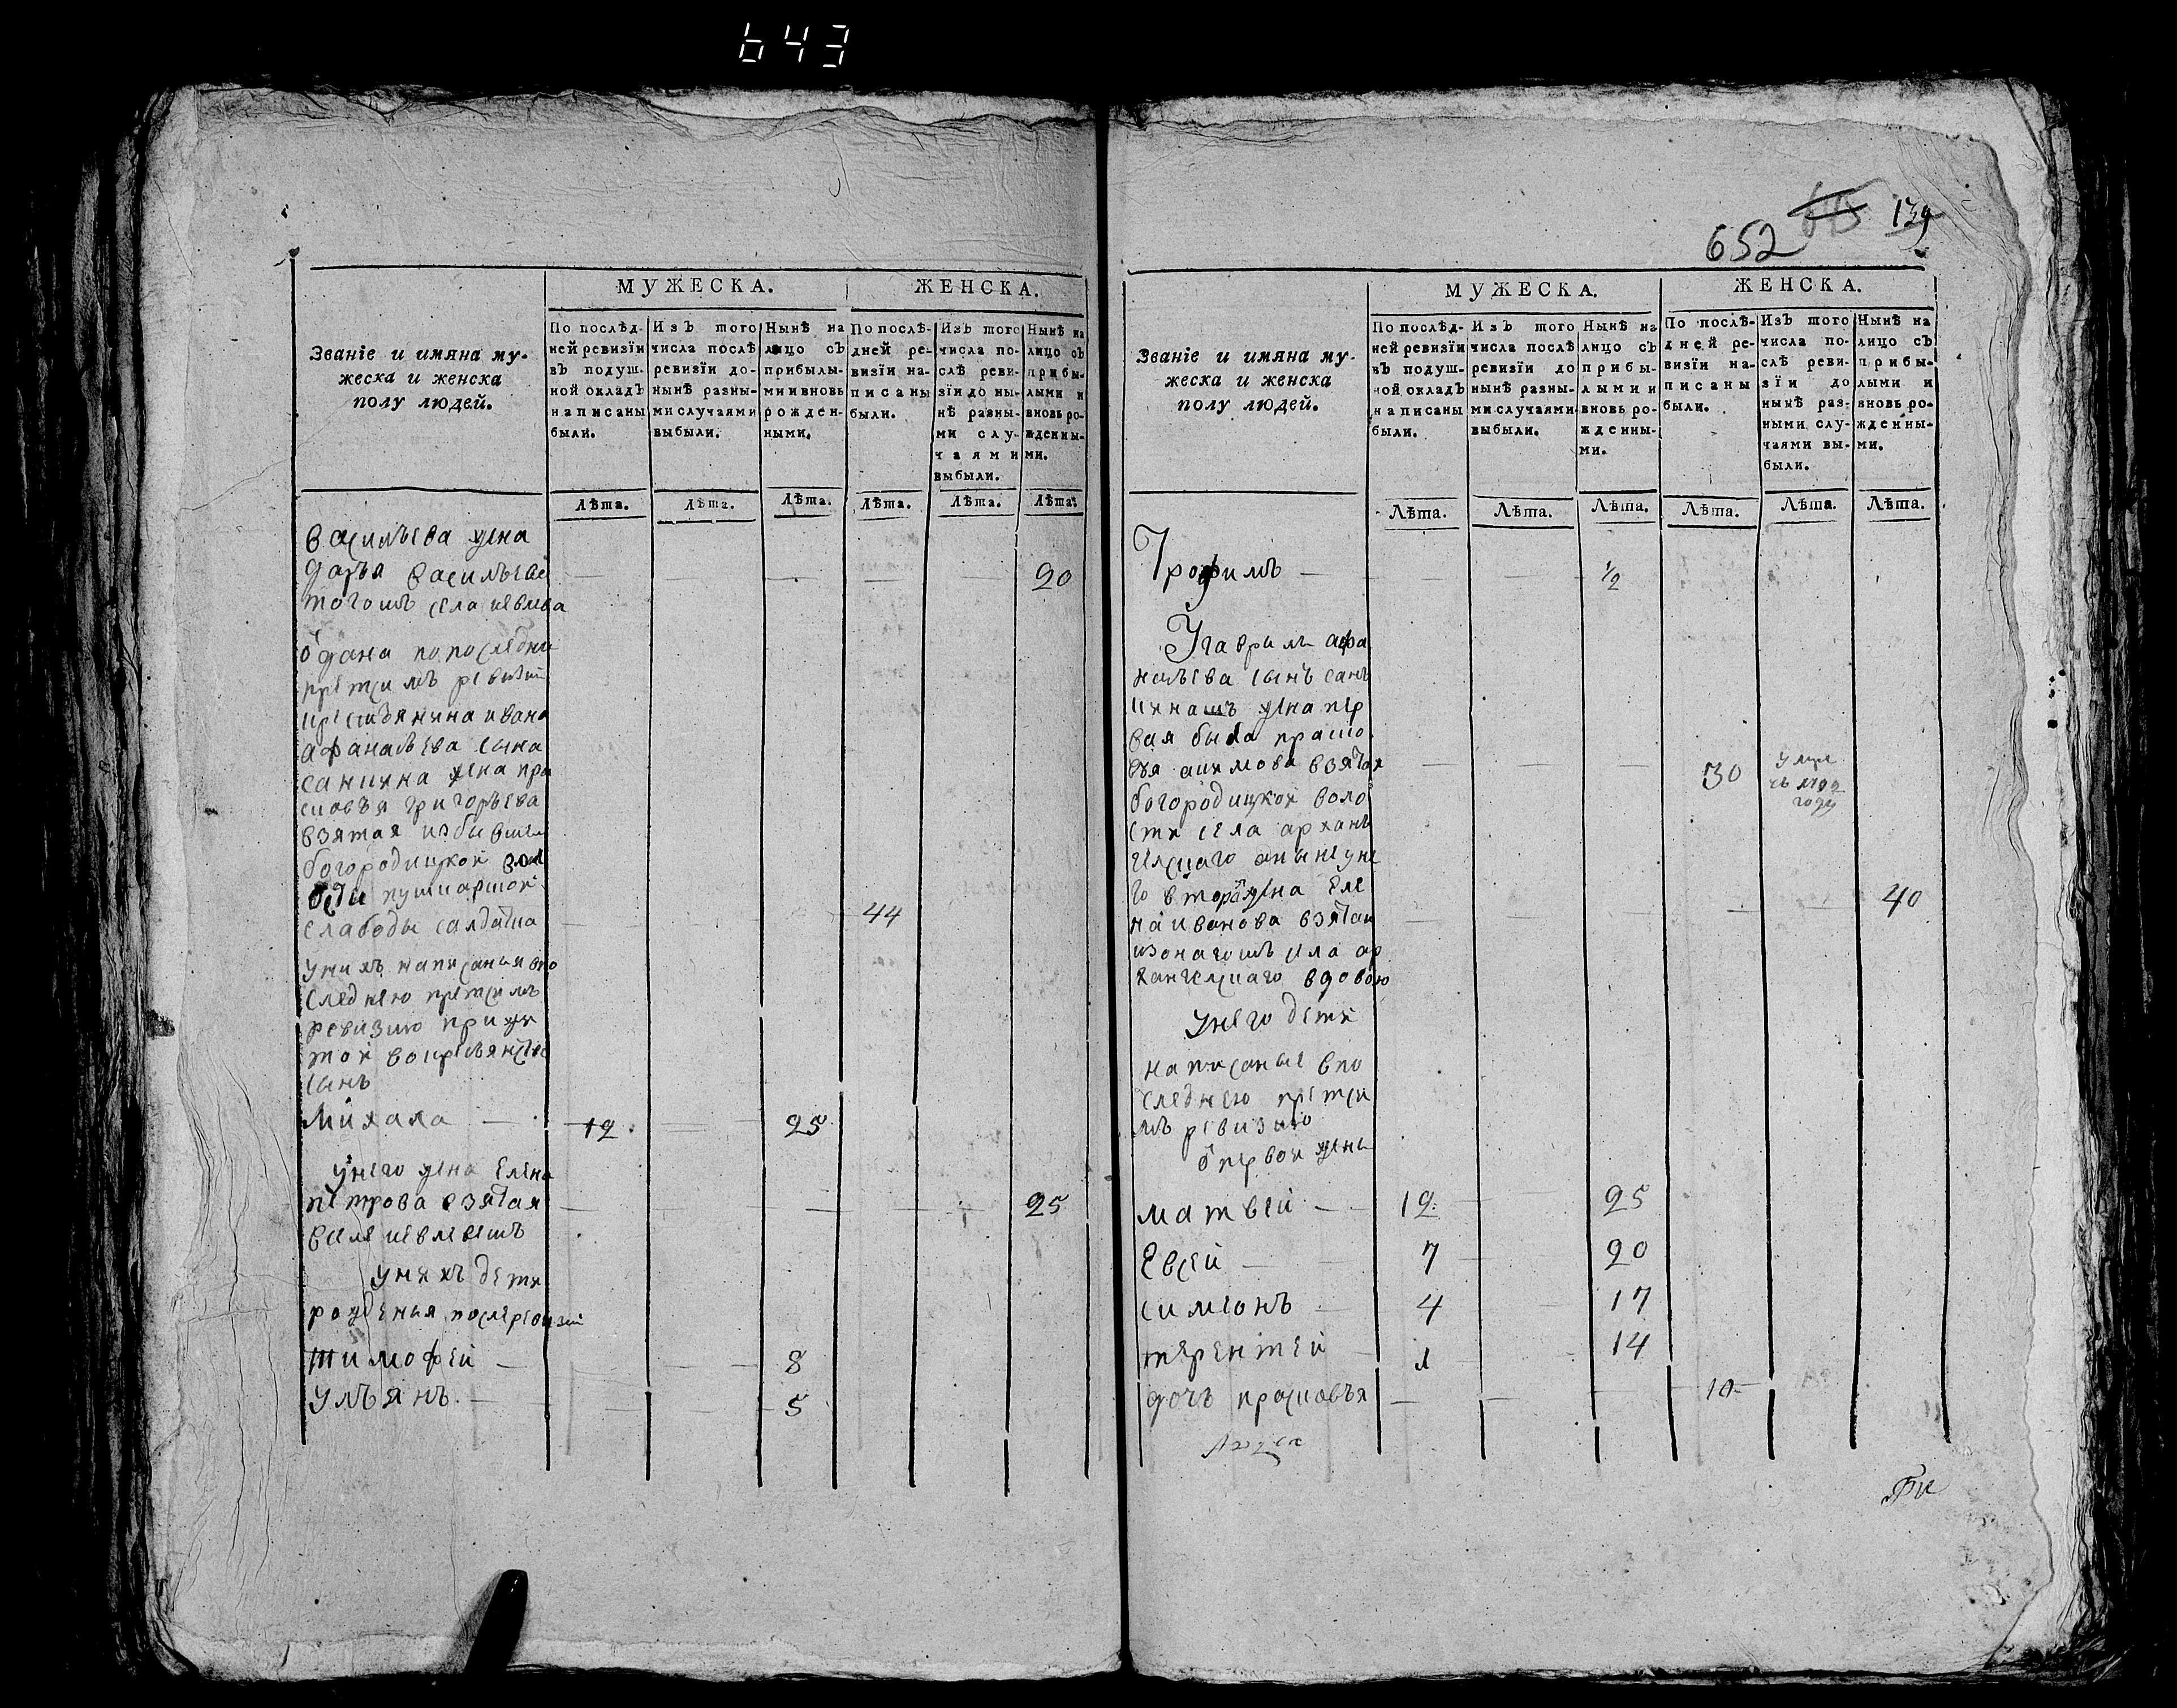 643
МУЖЕСКА.
ЖЕНСКА.
Званіе и имяна му-
жеска и женска
полу людей.
По послѣд-
ней ревизїи
въ подуш-
ной окладъ
написаны
были.
Изъ того
числа послѣ
ревизїи до-
нынѣ разны-
ми случаями
выбыли.
Нынѣ на
лицо съ
прибылы-
ми и вновь
рожден-
ными.
По послѣ-
дней ре-
визїи на-
писаны
были.
Изъ того
числа по-
слѣ реви-
зїи до ны-
нѣ разны-
ми слу-
чаями
выбыли.
Нынѣ на
лицо съ
прибы-
лыми и
вновь ро-
жденны-
ми.
Лѣта. Лѣта. Лѣта. Лѣта. Лѣта. Лѣта.
васильева жена
дарья василева 20
тогошъ села
одана попоследни
претсимъ ревизии
крестьянина ивана
афанасьева сына
санкина жена пра
сковья григорьева
взятая избывшеи
богородицкой
пушкарской
слабоды салдатка 44
унихъ написаныя впо
следнею претсимъ
ревизию прижи
той вокрестьянстве
сынъ
Михаила 12 25
унего жена Елена
петрова взятая 25
вселе
унихъ дети
рожденыя послеревизии
тимофеи 8
ульянъ 5
652 139
МУЖЕСКА.
ЖЕНСКА.
Званіе и имяна му-
жеска и женска
полу людей.
По послѣд-
ней ревизїи
въ подуш-
ной окладъ
написаны
были.
Изъ того
числа послѣ
ревизїи до
нынѣ разны-
ми случаями
выбыли.
Нынѣ на
лицо съ
прибы-
лыми и
вновь ро-
жденны-
ми.
По послѣ-
дней ре-
визїи на-
писаны
были.
Изъ того
числа по-
слѣ реви-
зїи до
нынѣ раз-
ными слу-
чаями вы-
были.
Нынѣ на
лицо съ
прибы-
лыми и
вновь ро-
жденны-
ми.
Лѣта. Лѣта. Лѣта. Лѣта. Лѣта. Лѣта.
Трофимъ 1/2
Угаврилы афа
насьева сынъ санъ
кинашъ жена пер
вая была праско
вья акимова взятая 30 умре
богородицкой воло году
сти села арханъ
гелскаго анынеуне
го вторая жена еле 40
на иванова взятая
изонагошъ села ар
хангелскаго вдовою
унего дети
написаные впо
следнею претси
мъ ревизию
от первой жены
матвей 12 25
Евсей 7 20
симионъ 4 17
терентей 1 14
дочь прасковья 10